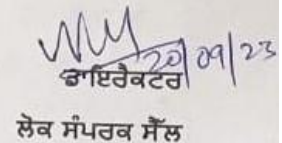 20/09/23
ਡਾਇਰੈਕਟਰ
ਲੋਕ ਸੰਪਰਕ ਸੈੱਲ